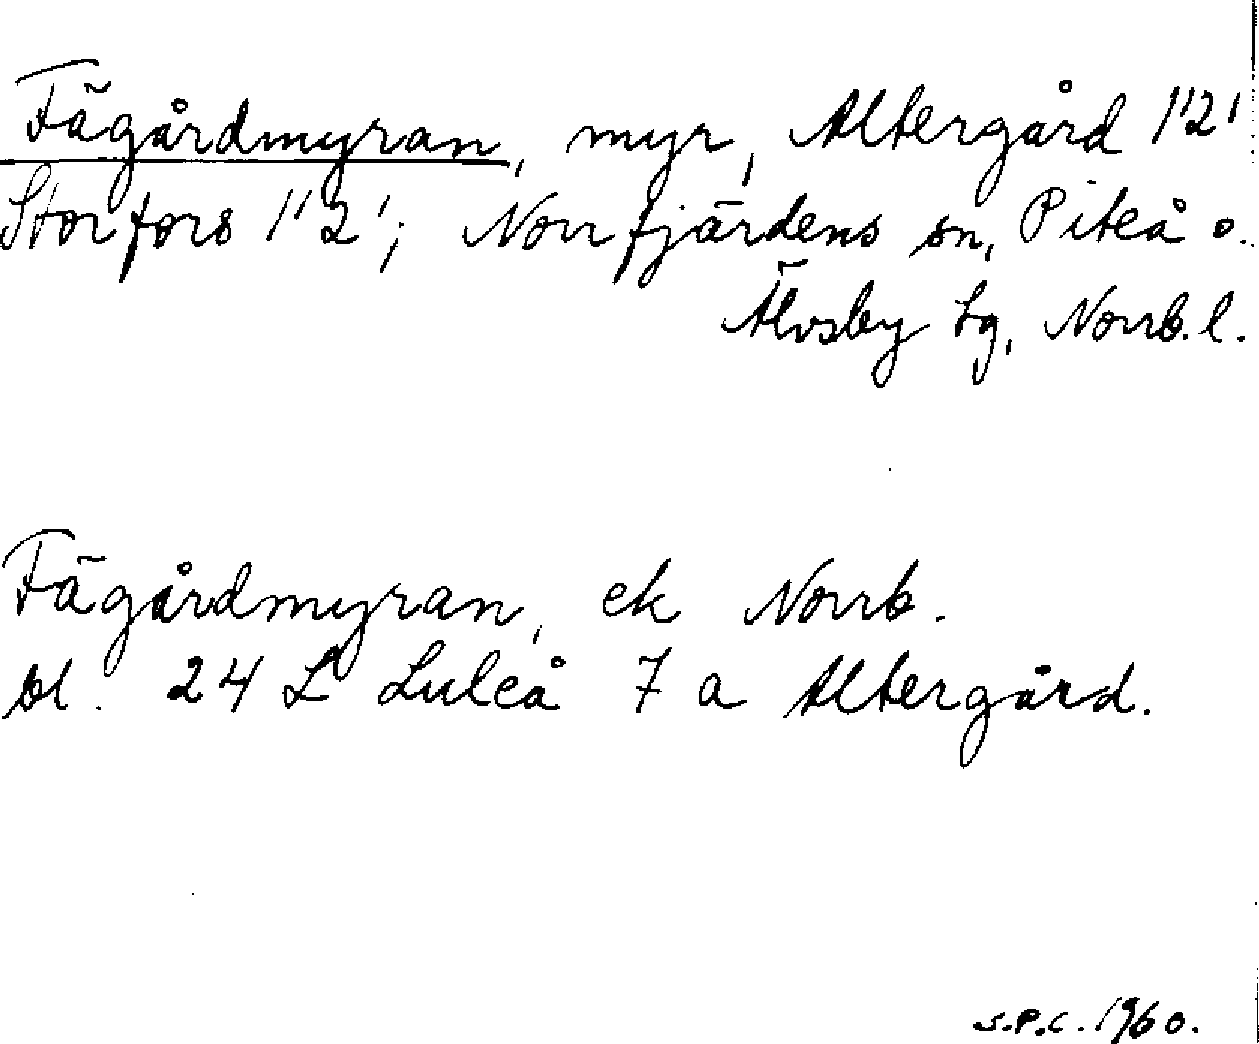 Fägårdmyran, myr, Altergård 1'2'
Storfors 1'2'; Norrfjärdens sn, Piteå o.
Älvsby tg, Norrb. l.
Fägårdmyran, ek Norrb.
bl. 24 L Luleå 7 a Altergård.
S.P.C. 1960.